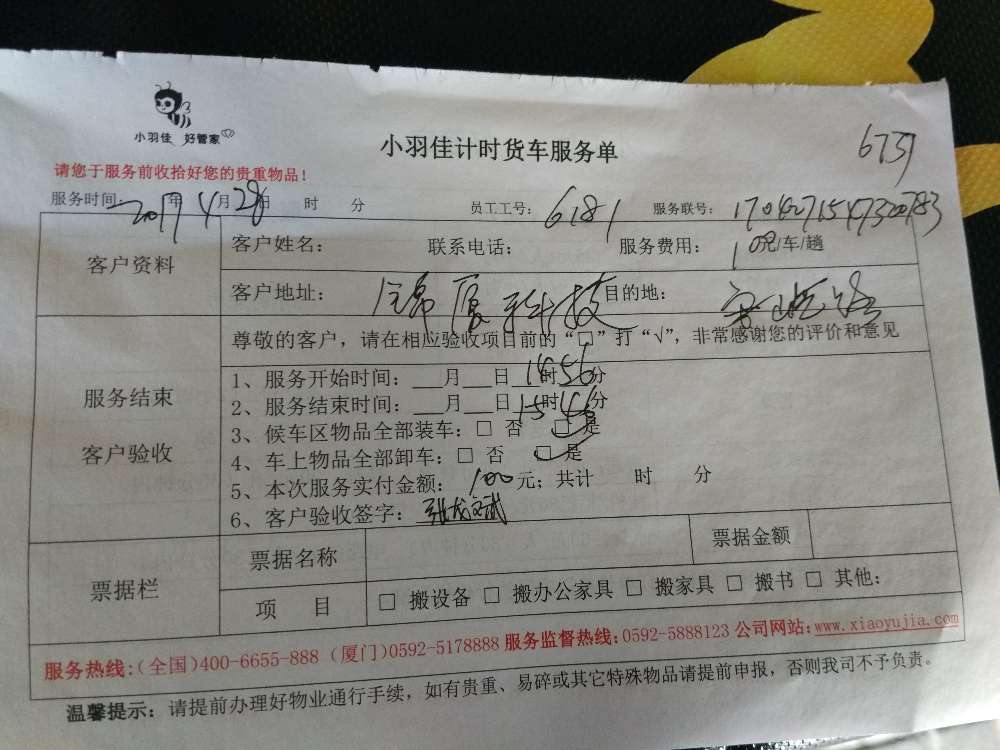 小羽佳 好管家
小羽佳计时货车服务单
6737
请您于服务前收拾好您的贵重物品!
服务时间: 2017年4月28日 时 分 员工工号: 6181 服务联号:
客户资料
客户姓名: 联系电话: 服务费用: 100元/车/趟
客户地址: 科技 目的地:
尊敬的客户，请在相应验收项目前的“□”打“√”，非常感谢您的评价和意见
服务结束
客户验收
1、服务开始时间: ___月___日 14时56分
2、服务结束时间: ___月___日 15时46分
3、候车区物品全部装车: □ 否 □ 是
4、车上物品全部卸车: □ 否 □ 是
5、本次服务实付金额: 100元; 共计 时 分
6、客户验收签字:
票据栏
票据名称 票据金额
项 目 □ 搬设备 □ 搬办公家具 □ 搬家具 □ 搬书 □ 其他:
服务热线:(全国)400-6655-888 (厦门)0592-5178888 服务监督热线:0592-5888123 公司网站:www.xiaoyujia.com
温馨提示: 请提前办理好物业通行手续，如有贵重、易碎或其它特殊物品请提前申报，否则我司不予负责。